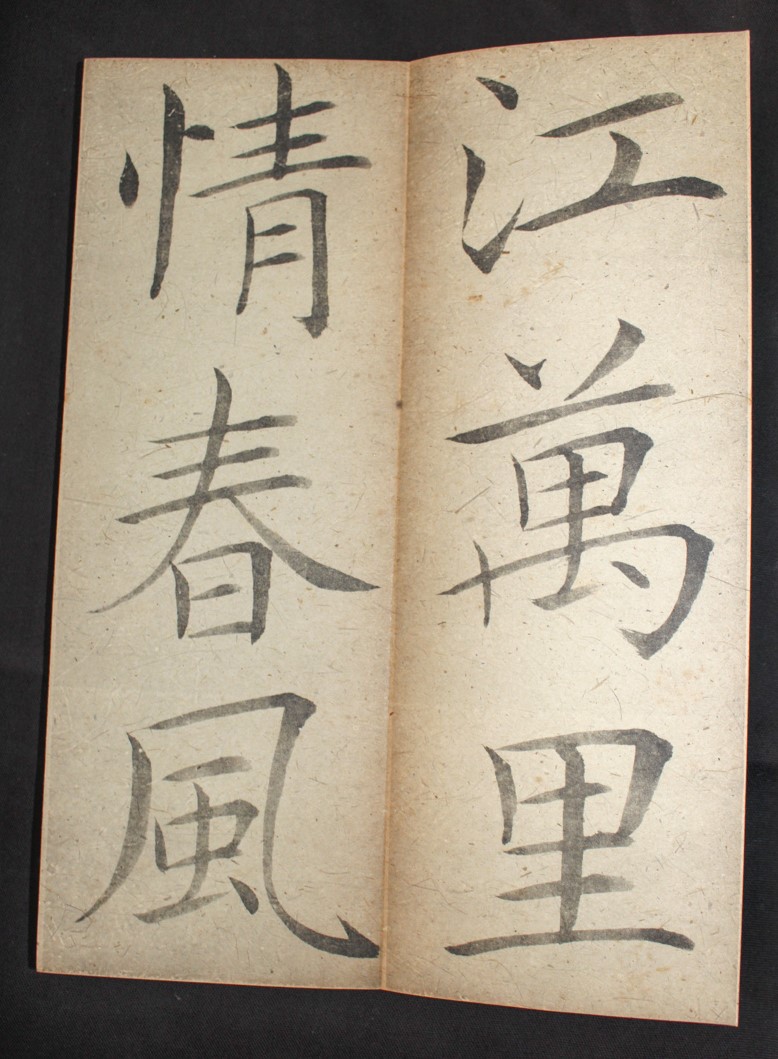 江萬里
情春風